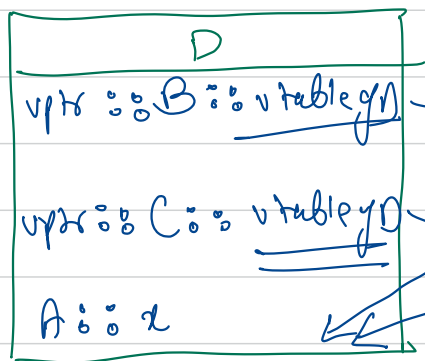 D
vptr :: B :: vtable of D
vptr :: C :: vtable of D
A :: x